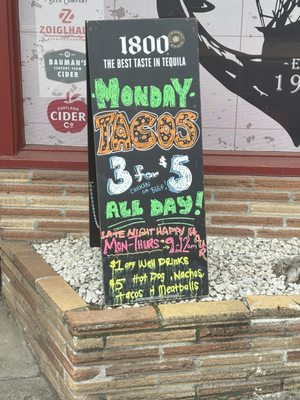 BEER COMPANY
Z
ZOIGLHAUS
BAUMAN'S
CIDER
PORTLAND
CIDER
CO
1800
THE BEST TASTE IN TEQUILA
MONDAY
TACOS
3 for $5
CHICKEN
OR BEEF
ALL DAY!
LATE NIGHT HAPPY
MON-THURS: 9-12
$1 off Well DRINKS
$5 Hot Dog, Nachos,
Tacos & Meatballs